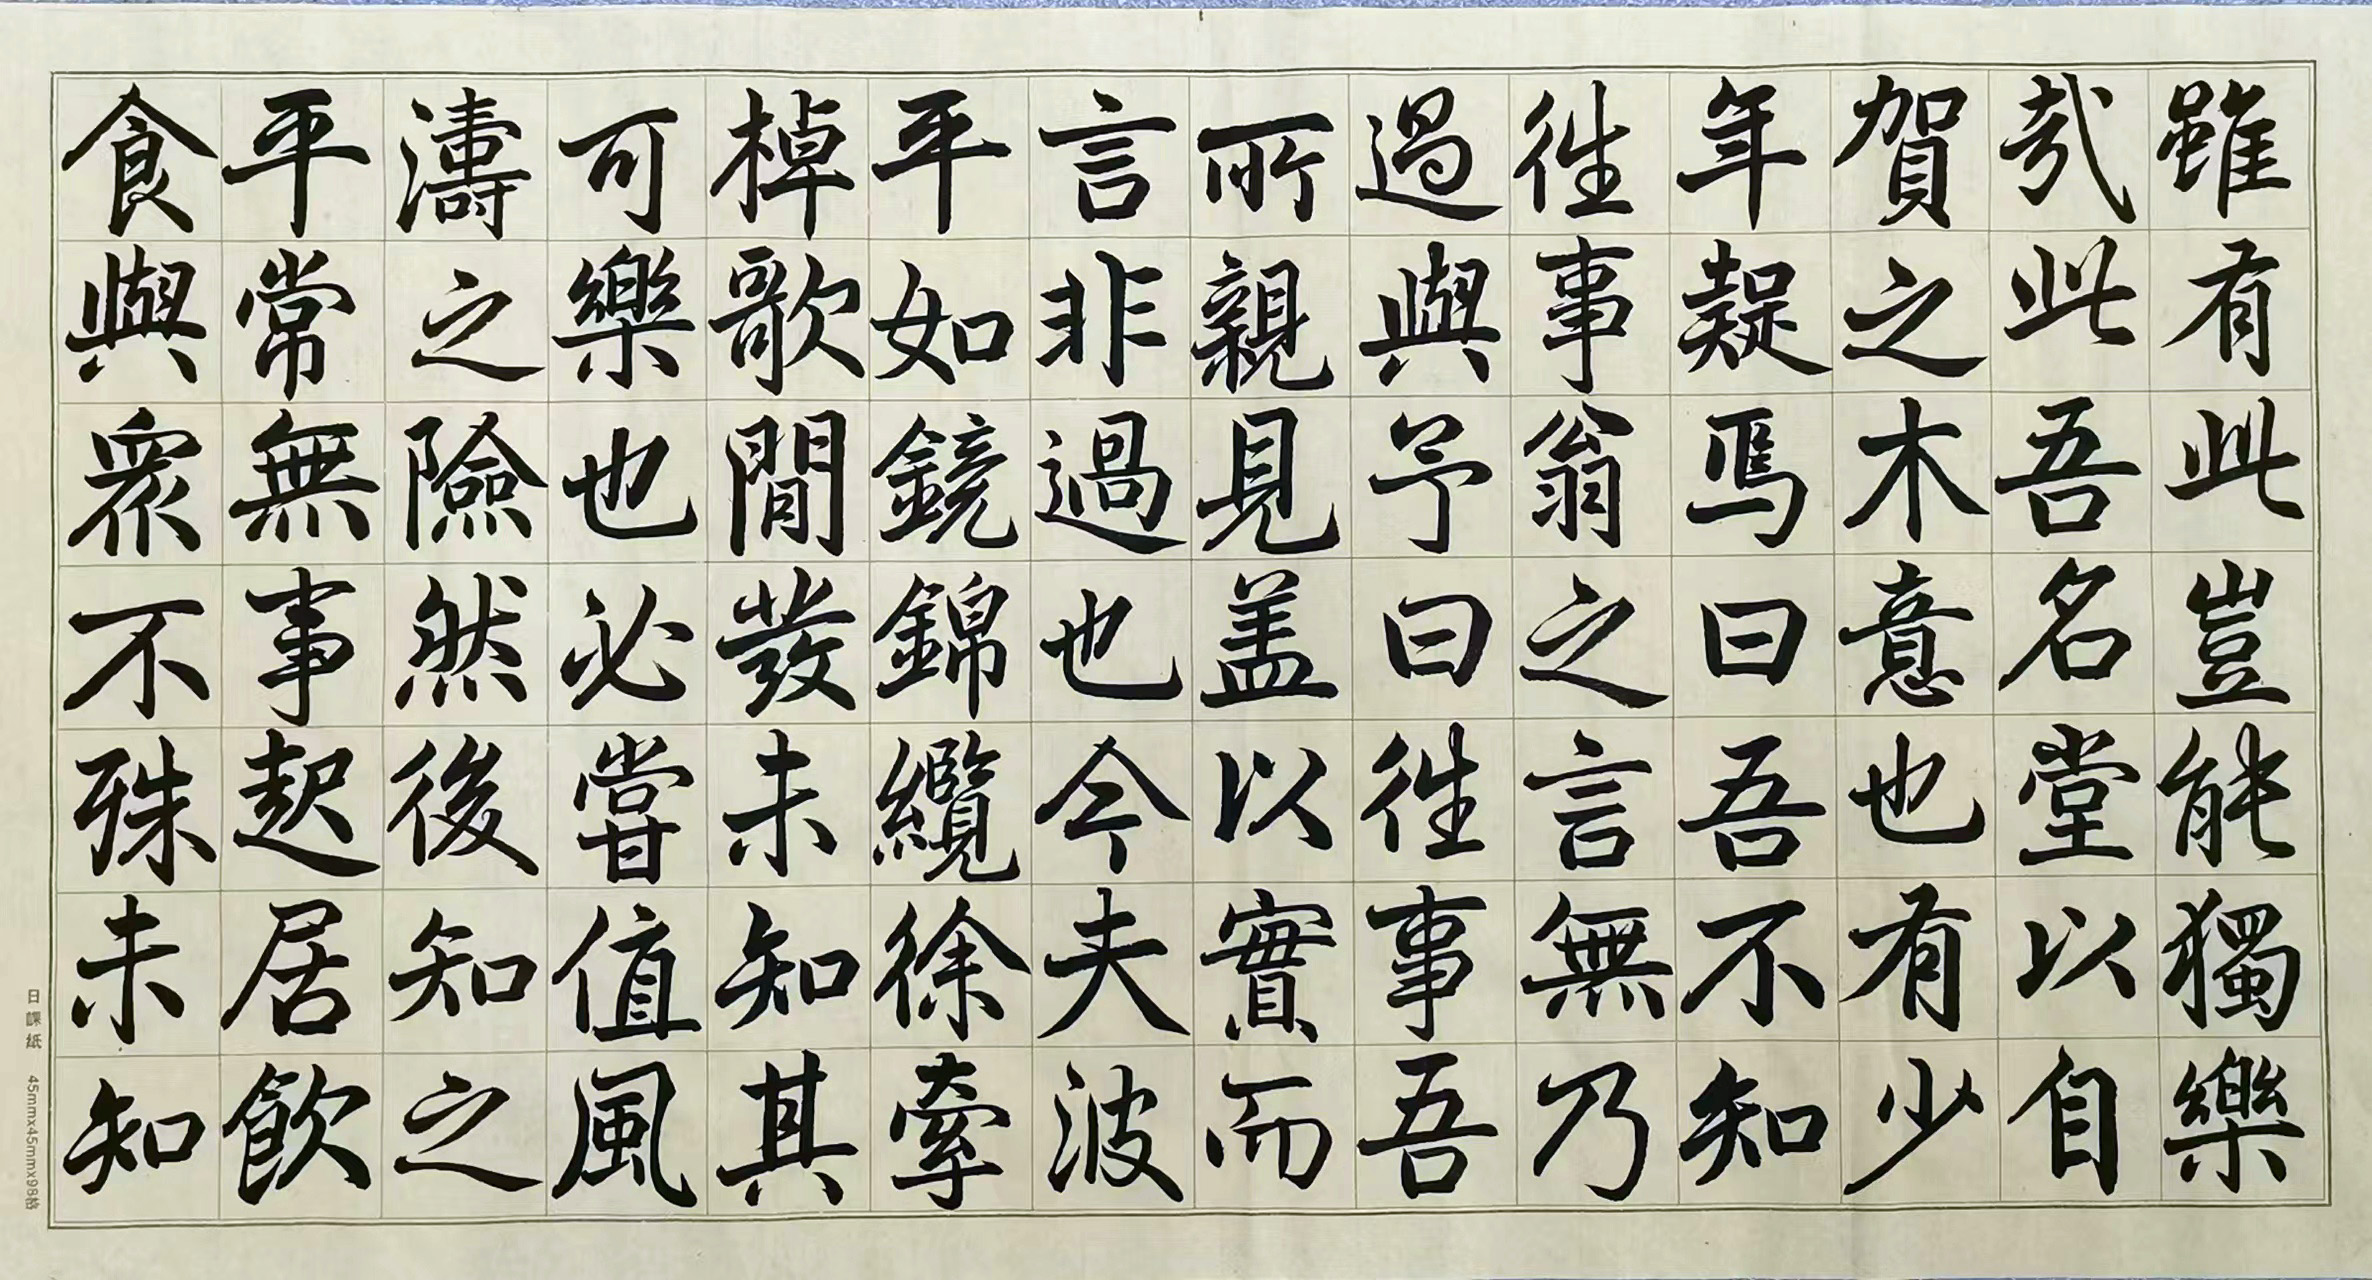 雖有此豈能獨樂
哉此吾名堂以自
賀之木意也有少
年疑焉曰吾不知
往事翁之言無乃
過與予曰往事吾
所親見盖以實而
言非過也今夫波
平如鏡錦纜徐牽
棹歌間發未知其
可樂也必嘗值風
濤之險然後知之
平常無事起居飲
食與衆不殊未知
日課紙 45mmx45mmx98格